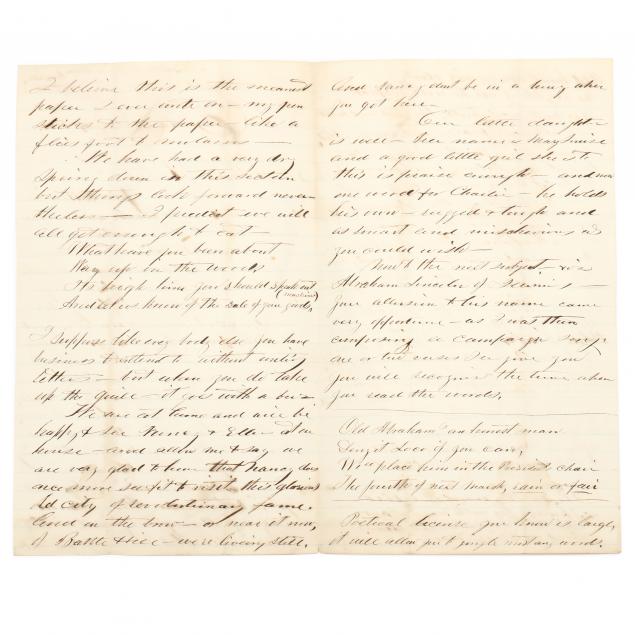 I believe this is the meanest
paper I ever write on – my pen
sticks to the paper – like a
flies foot to molasses –
We have had a very dry
Spring down in this section
but things look forward never
theless – I predict we will
all get enough to eat –
What have you been about
Way up in the woods
Its high time you should speak out
And let us know of the sale of your goods
I suppose like every body else you have
business to attend to without writing
letters – but when you do take
up the quill – it goes with a
We are at home and will be
happy to see Nancy & Ellen at our
house – and allow me to say we
are very glad to hear that Nancy does
once more see fit to visit this glorious
old city of revolutionary fame.
And in the town – or near it now,
of Battle Hill – were living still.
And Nancy dont be in a hurry when
you get here –
Our little daughter
is well – her name is May Louise
and a good little girl she is to
this is praise enough – and now
one word for Charlie – he holds
his own – rugged & tough and
as smart and mischievous as
you could wish –
Now the next subject – is
Abraham Lincoln of
your allusion to his name came
very opportune – as I was then
composing a campaign song
one or two verses I
you will recognize the tune when
you read the words.
Old Abraham an honest man
Deny it Loco if you can,
We'll place him in the President chair
The fourth of next March, rain or fair
Poetical license you know is large,
it will allow to jingle most any words.